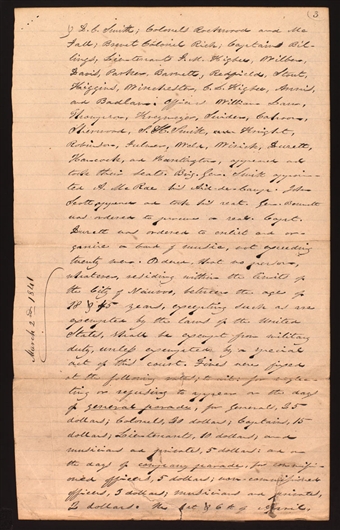 (3
& D. C. Smith; Colonels Rockwood and Mc
Fall; Brevet Colonel Rich; Captains Bil-
lings, Lieutenants G. W. Higbee, Wilber,
David, Parker, Barnett, Redfield, Stout,
Higgins, Winchester, C. S. Higbee,
and Badlam. Officers William Law,
Thompson, Snider,
Sherwood, Smith, Knight,
Robinson, Fulmer, Weld, Wissick, Durett,
Hancock, and Huntington, appeared and
took their seats. Brig. Gen. Smith appoin-
ted A. McRae his Aid-de-camp. John
Scott appeared and took his seat. Gen. Bennett
was ordered to procure a seal. Capt.
Durett was ordered to enlist and or-
ganize a band of music, not exceeding
twenty men. Ordered, that no person,
whatever, residing within the limits of
the City of Nauvoo, between the ages of
18 & 45 years, excepting such as are
exempted by the laws of the United
States, shall be exempt from military
duty, unless exempted by a special
act of this court. Fines were fixed
at the following rates, to wit: for neglec-
ting or refusing to appear on the day
of general parade, for Generals, 25
dollars; Colonels, 20 dollars; Captains, 15
dollars; Lieutenants, 10 dollars; and
musicians and privates, 5 dollars: and on
the day of company parade, for commiss-
ioned officers, 5 dollars; non-commissioned
officers, 3 dollars; musicians and privates,
2 dollars. The 1st & 6th of April
March 2nd 1841